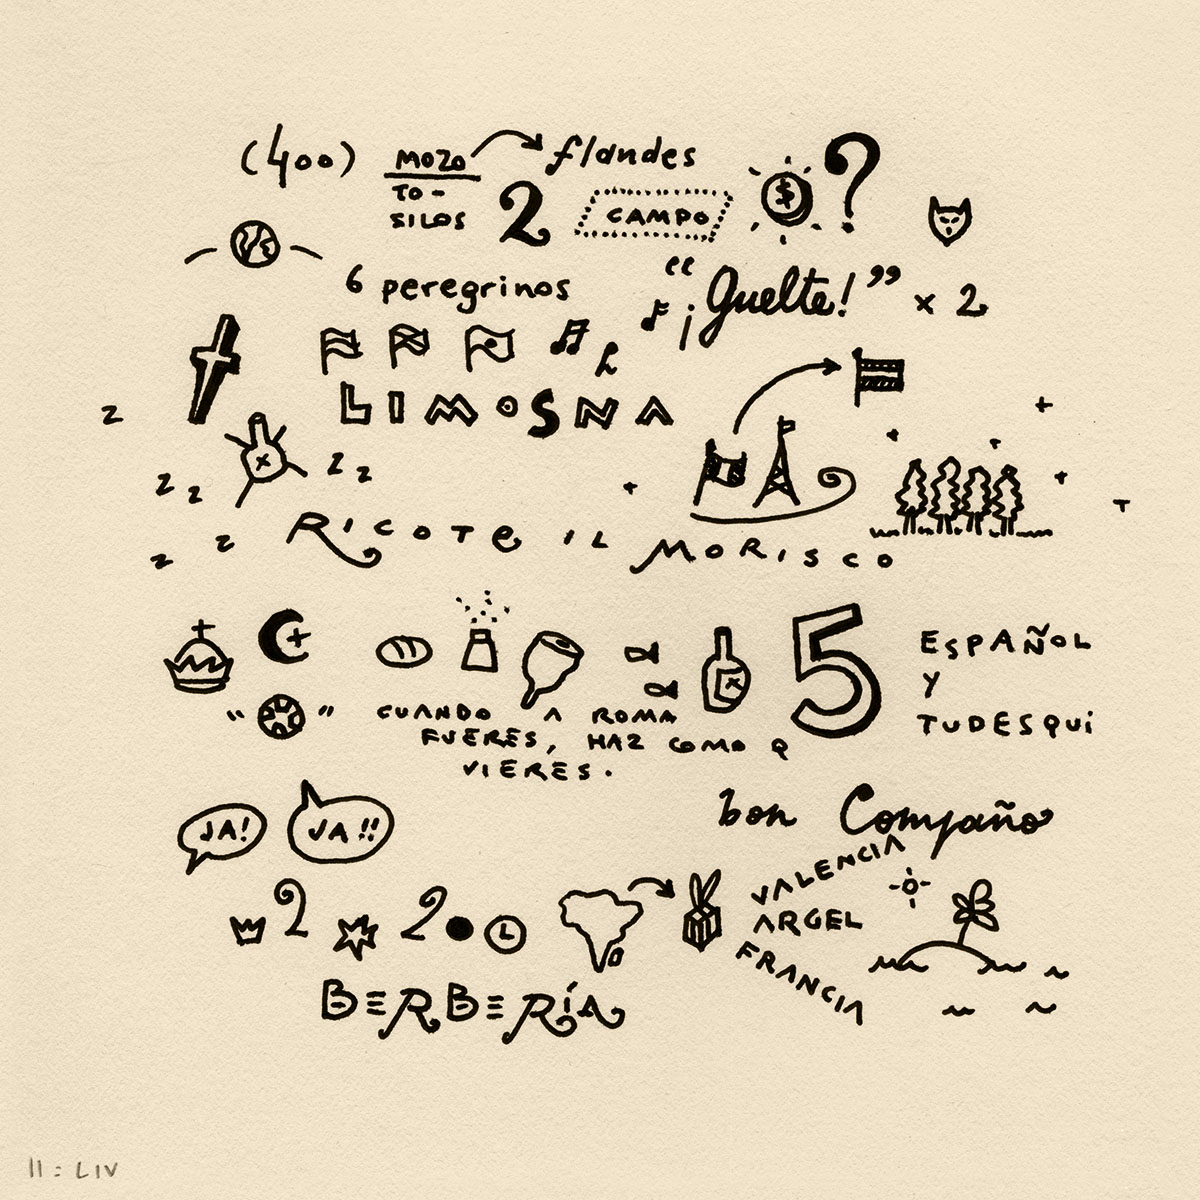 (400) MOZO flandes
TO-
SILOS 2 CAMPO $ ?
6 peregrinos “¡Guelte!” x 2
LIMOSNA
z
z z z z
z z
RICOTE IL MORISCO
5 ESPAÑOL
Y
TUDESQUI
“ ” CUANDO A ROMA
FUERES, HAZ COMO Q
VIERES.
JA! JA!! bon Compaño
2 2 VALENCIA
ARGEL
FRANCIA
BERBERÍA
II: LIV